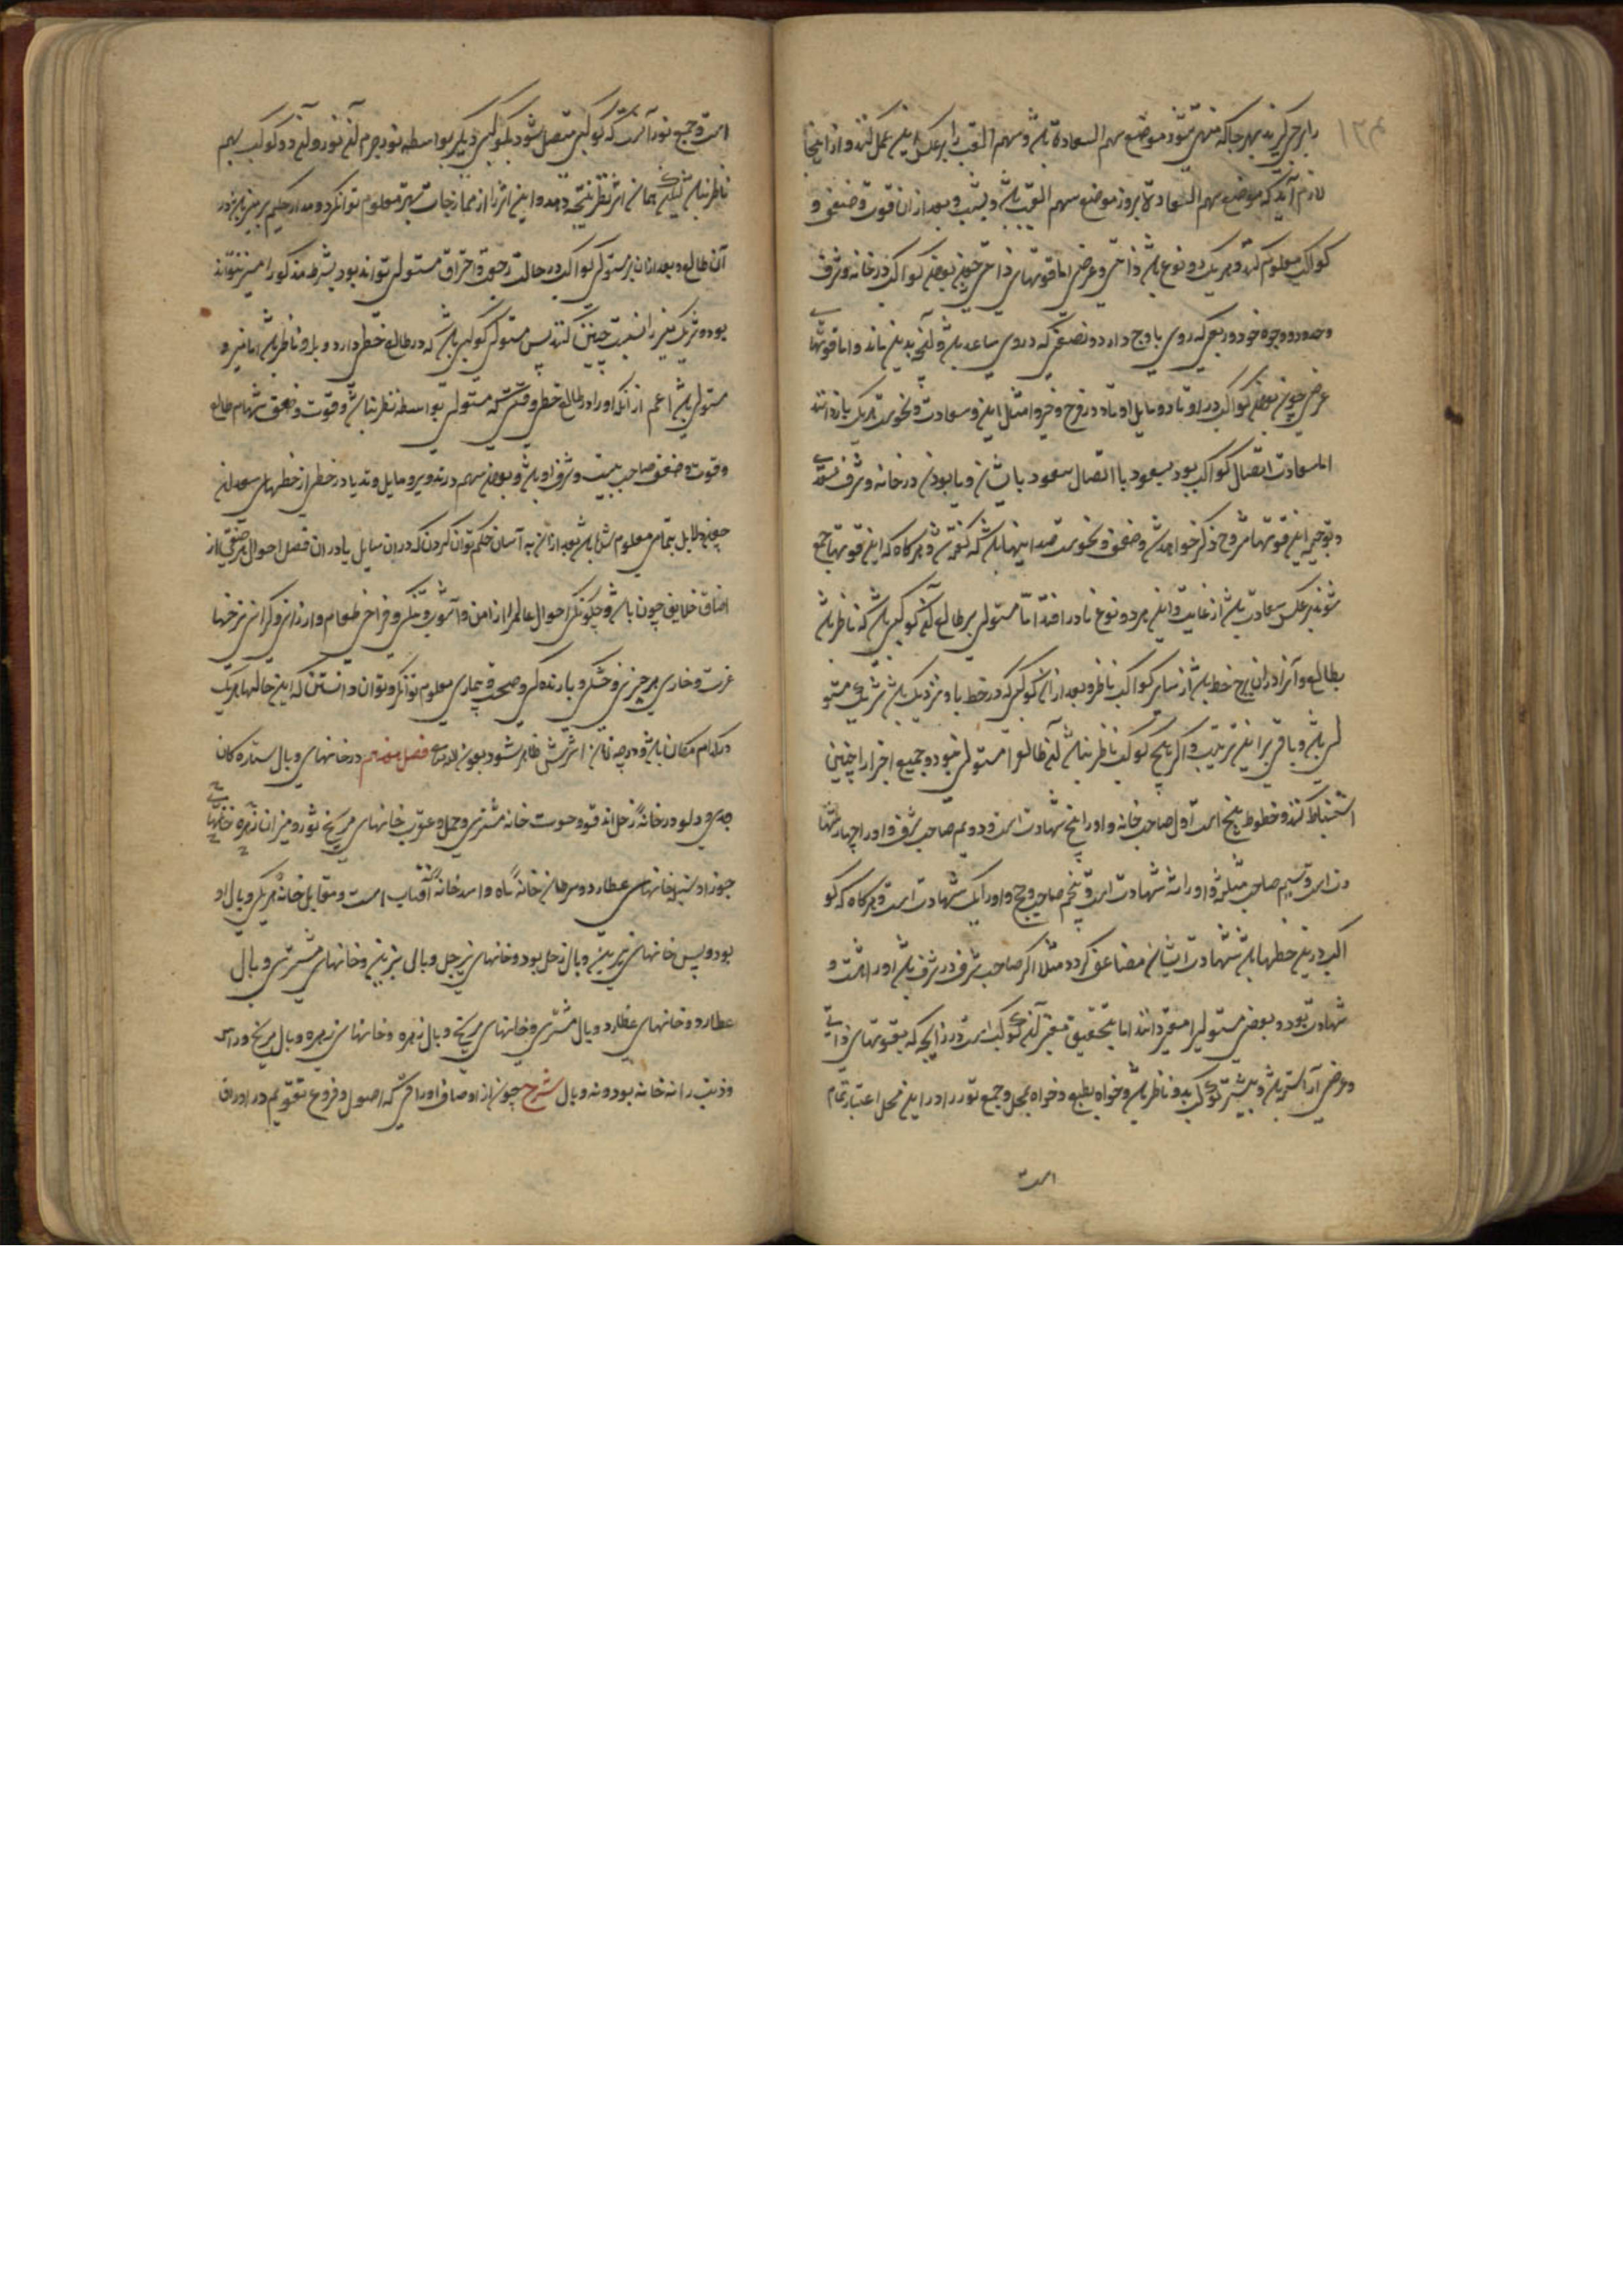 را برج گیرند بهر جا که منتهی شود موضع سهم السعادة باشد و سهم الغیب را بر عکس این عمل کنند و از اینجا
لازم آید که موضع سهم السعادة بروز موضع سهم الغیب باشد و بشب و بعد از ان قوت و ضعف و
کواکب معلوم کند و هر یک دو نوع باشد ذاتی و عرضی اما قوتهای ذاتی چون بودن کواکب در خانه و شرف
و حدود و وجوه خود و ربعی که روی باوج دارد و نصفی که در وی صاعد باشد و آنچه بدین ماند و اما قوتهای
عرضی چون بودن کواکب در اوتاد و مایل اوتاد و در فرح و خیر و امثال این و سعادت و نحوست هر یک بازدانند
اما سعادت اتصال کواکب بود بسعود یا اتصال سعود با ایشان و یا بودن در خانه و شرف سعود
این قوتها مشروح ذکر خواهد شد و ضعف و نحوست ضد اینها باشد که گفته شد و هرگاه که این قوتها جمع
شوند بر عکس سعادت باشد از غایت و این هر دو نوع نادر افتد اما مستولی بر طالع آن کوکبی باشد که ناظر باشد
بطالع و آنرا در ان برج خط باشد از سایر کواکب ناظر و بعد از ان کوکبی که در خط با او نزدیک باشد شریک مستو
لی باشد و باقی بر این ترتیب و اگر هیچ کوکب ناظر نباشد آن طالع را مستولی نبود و جمیع اجزا را چنین
استنباط کنند و خطوط پنج است اول صاحب خانه و او را پنج شهادت است و دویم صاحب شرف و او را چهار شها
دت است و سیم صاحب مثلثه و او را سه شهادت است و پنجم صاحب وجه و او را یک شهادت است و هرگاه که کو
اکب در این خطها باشد شهادت ایشان مضاعف گردد مثلا اگر صاحب شرف در شرف باشد او را هشت و
شهادت بود و بعضی مستولی را معتبر دانند اما بتحقیق معتبر آن کوکب است در زایجه که بقوتهای ذاتی
و عرضی آراسته باشد و بیشتر کواکب بدو ناظر باشد خواه بطبع و خواه بمحل و جمع نور را در این محل اعتبار تمام
است
است و جمع نور آنست که کوکبی متصل شود بکوکبی دیگر بواسطه نور جرم آن نور و آن دو کوکب بهم
ناظر نباشد لیکن همان اثر نظر نتیجه دهد و این اثر را از ممازجات بهتر معلوم توان کرد و مدار حکیم بر میزان نور
آن طالع و بعد از ان بر مستولی کواکب در حالت رجوع و احتراق مستولی تواند بود بشرط مذکور اما مبتز نتواند
بود و شریک مبتز را نسبت چنین کنند پس مستولی کوکبی باشد که در طالع خطی دارد و بدو ناظر باشد اما مبتز و
مستولی باشد اعم از آنکه او را در طالع خطی و قسمی که مستولی بواسطه نظر نباشد و قوت و ضعف سهام طالع
و قوت و ضعف صاحب بیت و شرف او باشد و بودن سهم در وتد و مایل وتد یا در خطی از خطهای سعد ان
چون دلایل بتمامی معلوم شده باشد بعد از ان به آسان حکم توان کردن که در ان سایل یا در ان فصل احوال هر صنفی از
اصناف خلایق چون باشد و چگونگی احوال عالم را از امن و آشوب و تنگی و فراخی طعام و ارزانی و گرانی نرخها
عزت و خواری هر چیزی و خشکی و بارندگی و صحت و بیماری معلوم توان کرد و توان دانستن که این حالها هر یک
در کدام مکان باشد و در چه زمان اثرش ظاهر شود بعون الله تعالی فصل هفتم در خانهای وبال ستارگان
جدی و دلو در خانهٔ زحل اند قوس و حوت خانه مشتری و حمل و عقرب خانهای مریخ ثور و میزان از زهره خانهای
جوزا و سنبله خانهای عطارد و سرطان خانهٔ ماه و اسد خانهٔ آفتاب است و مقابل خانهٔ هر یکی وبال او
بود و پس خانهای نیرین وبال زحل بود و خانهای زحل وبال نیرین و خانهای مشتری وبال
عطارد و خانهای عطارد وبال مشتری و خانهای مریخ وبال زهره و خانهای زهره وبال مریخ و راس
و ذنب را نه خانه بود و نه وبال شرح چون از اوصاف اوراقی که اصول و فروع تقویم در اوراق